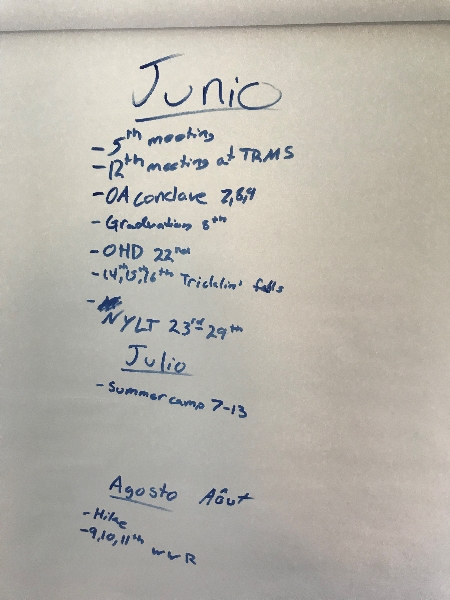 Junio
- 5th meeting
- 12th meeting at TRMS
- OA conclave 7,8,9
- Graduation 8th
- OHD 22nd
- 14th,15th,16th Tricklin' falls
- NYLT 23rd-29th
Julio
- Summer camp 7-13
Agosto Aôut
- Hike
- 9,10,11th WWR